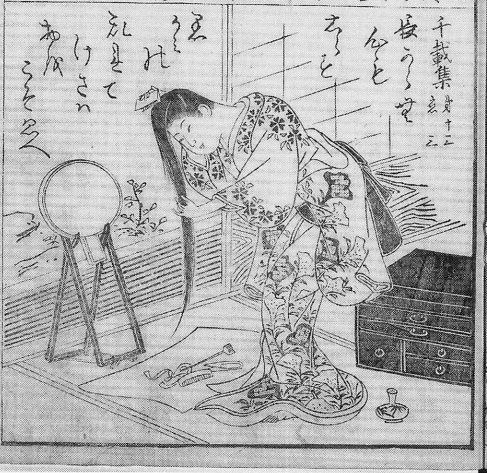 千載集
恋三
長からむ
心も
しらす
黒
かみ
の
乱れて
けさハ
物を
こそ思へ